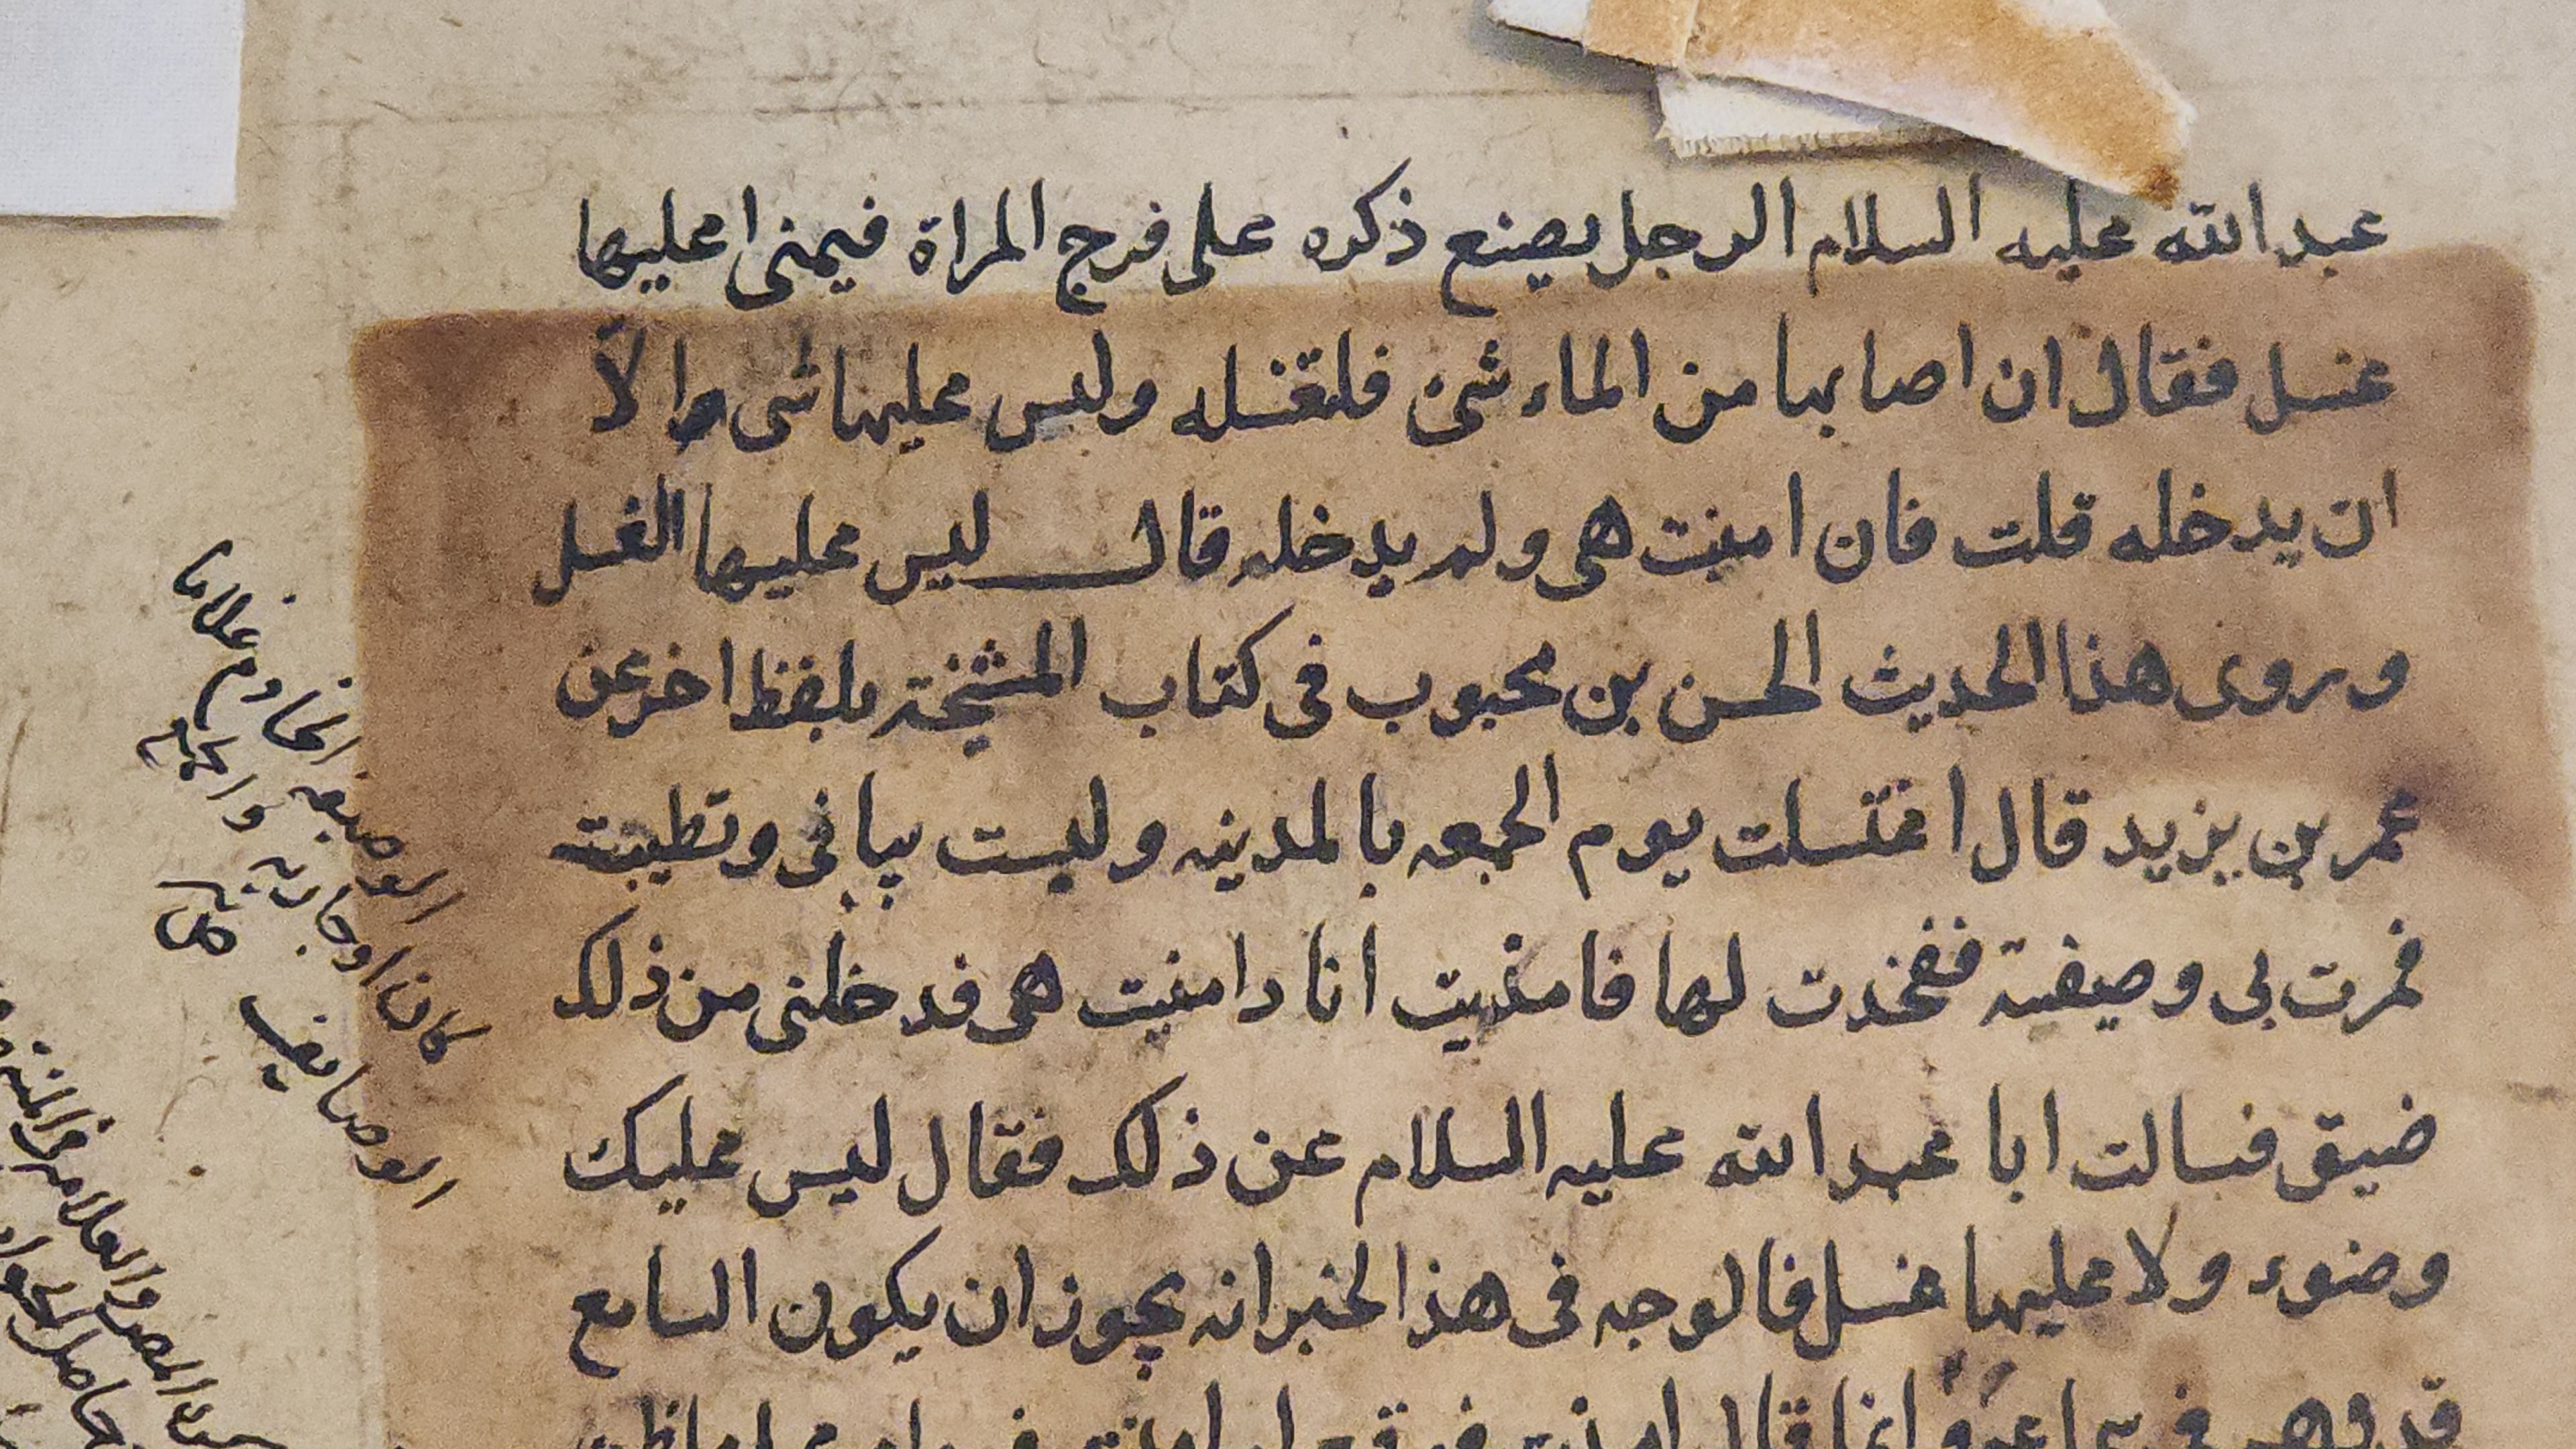 عبد الله عليه السلام الرجل يضع ذكره على فرج المراة فيمنى اعليها
غسل فقال ان اصابها من الماء شئ فلتغسله وليس عليها شى الا
ان يدخله قلت فان امنت هى ولم يدخله قال ليس عليها الغسل
وروى هذا الحديث الحسن بن محبوب فى كتاب المشيخة بلفظ اخر عن
عمر بن يزيد قال اغتسلت يوم الجمعه بالمدينه ولبست ثيابى وتطيبت
فمرت بى وصيفة ففخذت لها فامذيت انا وامنيت هى فدخلنى من ذلك
ضيق فسالت ابا عبد الله عليه السلام عن ذلك فقال ليس عليك
وضوء ولا عليها غسل فالوجه فى هذا الخبر انه يجوز ان يكون السامع
قد وهم فى سماعه وانما قال امذت فوقع له امنت فرواه على ما ظن
الوصيفة الخادم غلاما
كان او جارية والجمع
الوصايف